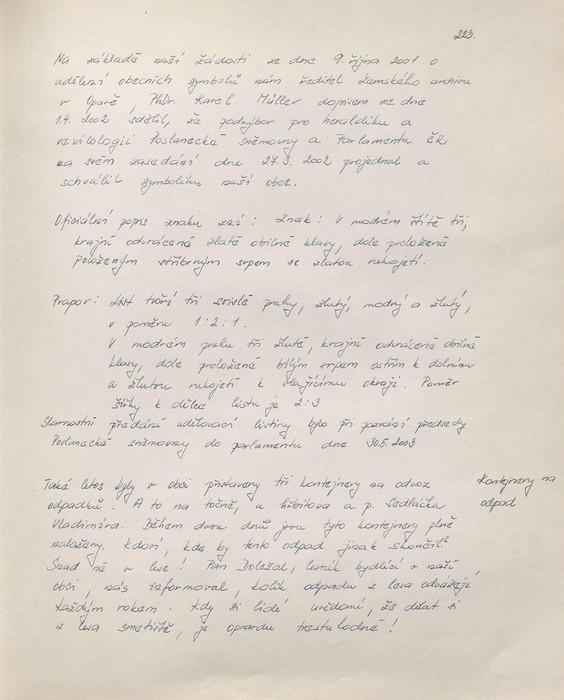 223.
Na základě naší žádosti ze dne 9. října 2001 o
udělení obecních symbolů nám ředitel Zemského archivu
v Opavě, PhDr. Karel Müller dopisem ze dne
1.4. 2002 sdělil, že podvýbor pro heraldiku a
vexilologii Poslanecké sněmovny a Parlamentu ČR
na svém zasedání dne 27.3. 2002 projednal a
schválil symboliku naší obce.
Oficiální popis znaku zní: Znak: V modrém štítě tři,
krajní odvrácené zlaté obilné klasy, dole proložené
položeným stříbrným srpem se zlatou rukojetí.
Prapor: List tvoří tři svislé pruhy, žlutý, modrý a žlutý,
v poměru 1:2:1.
V modrém pruhu tři žluté, krajní odvrácené obilné
klasy, dole proložené bílým srpem ostřím k dolnímu
a žlutou rukojetí k vlajícímu okraji. Poměr
šířky k délce listu je 2:3
Slavnostní předání udělovací listiny bylo při pozvání předsedy
Poslanecké sněmovny do parlamentu dne 30.5.2003
Také letos byly v obci přistaveny tři kontejnery na odvoz
Kontejnery na
odpadků. A to na točně, u hřbitova a p. Sedláčka
odpad
Vladimíra. Během dvou dnů jsou tyto kontejnery plně
naloženy. Kdoví, kde by tento odpad jinak skončil?
Snad ne v lese! Pan Doležal, lesník bydlící v naší
obci, nás informoval, kolik odpadu z lesa odvážejí
každým rokem. Kdy si lidé uvědomí, že dělat si
z lesa smetiště, je opravdu trestuhodné!